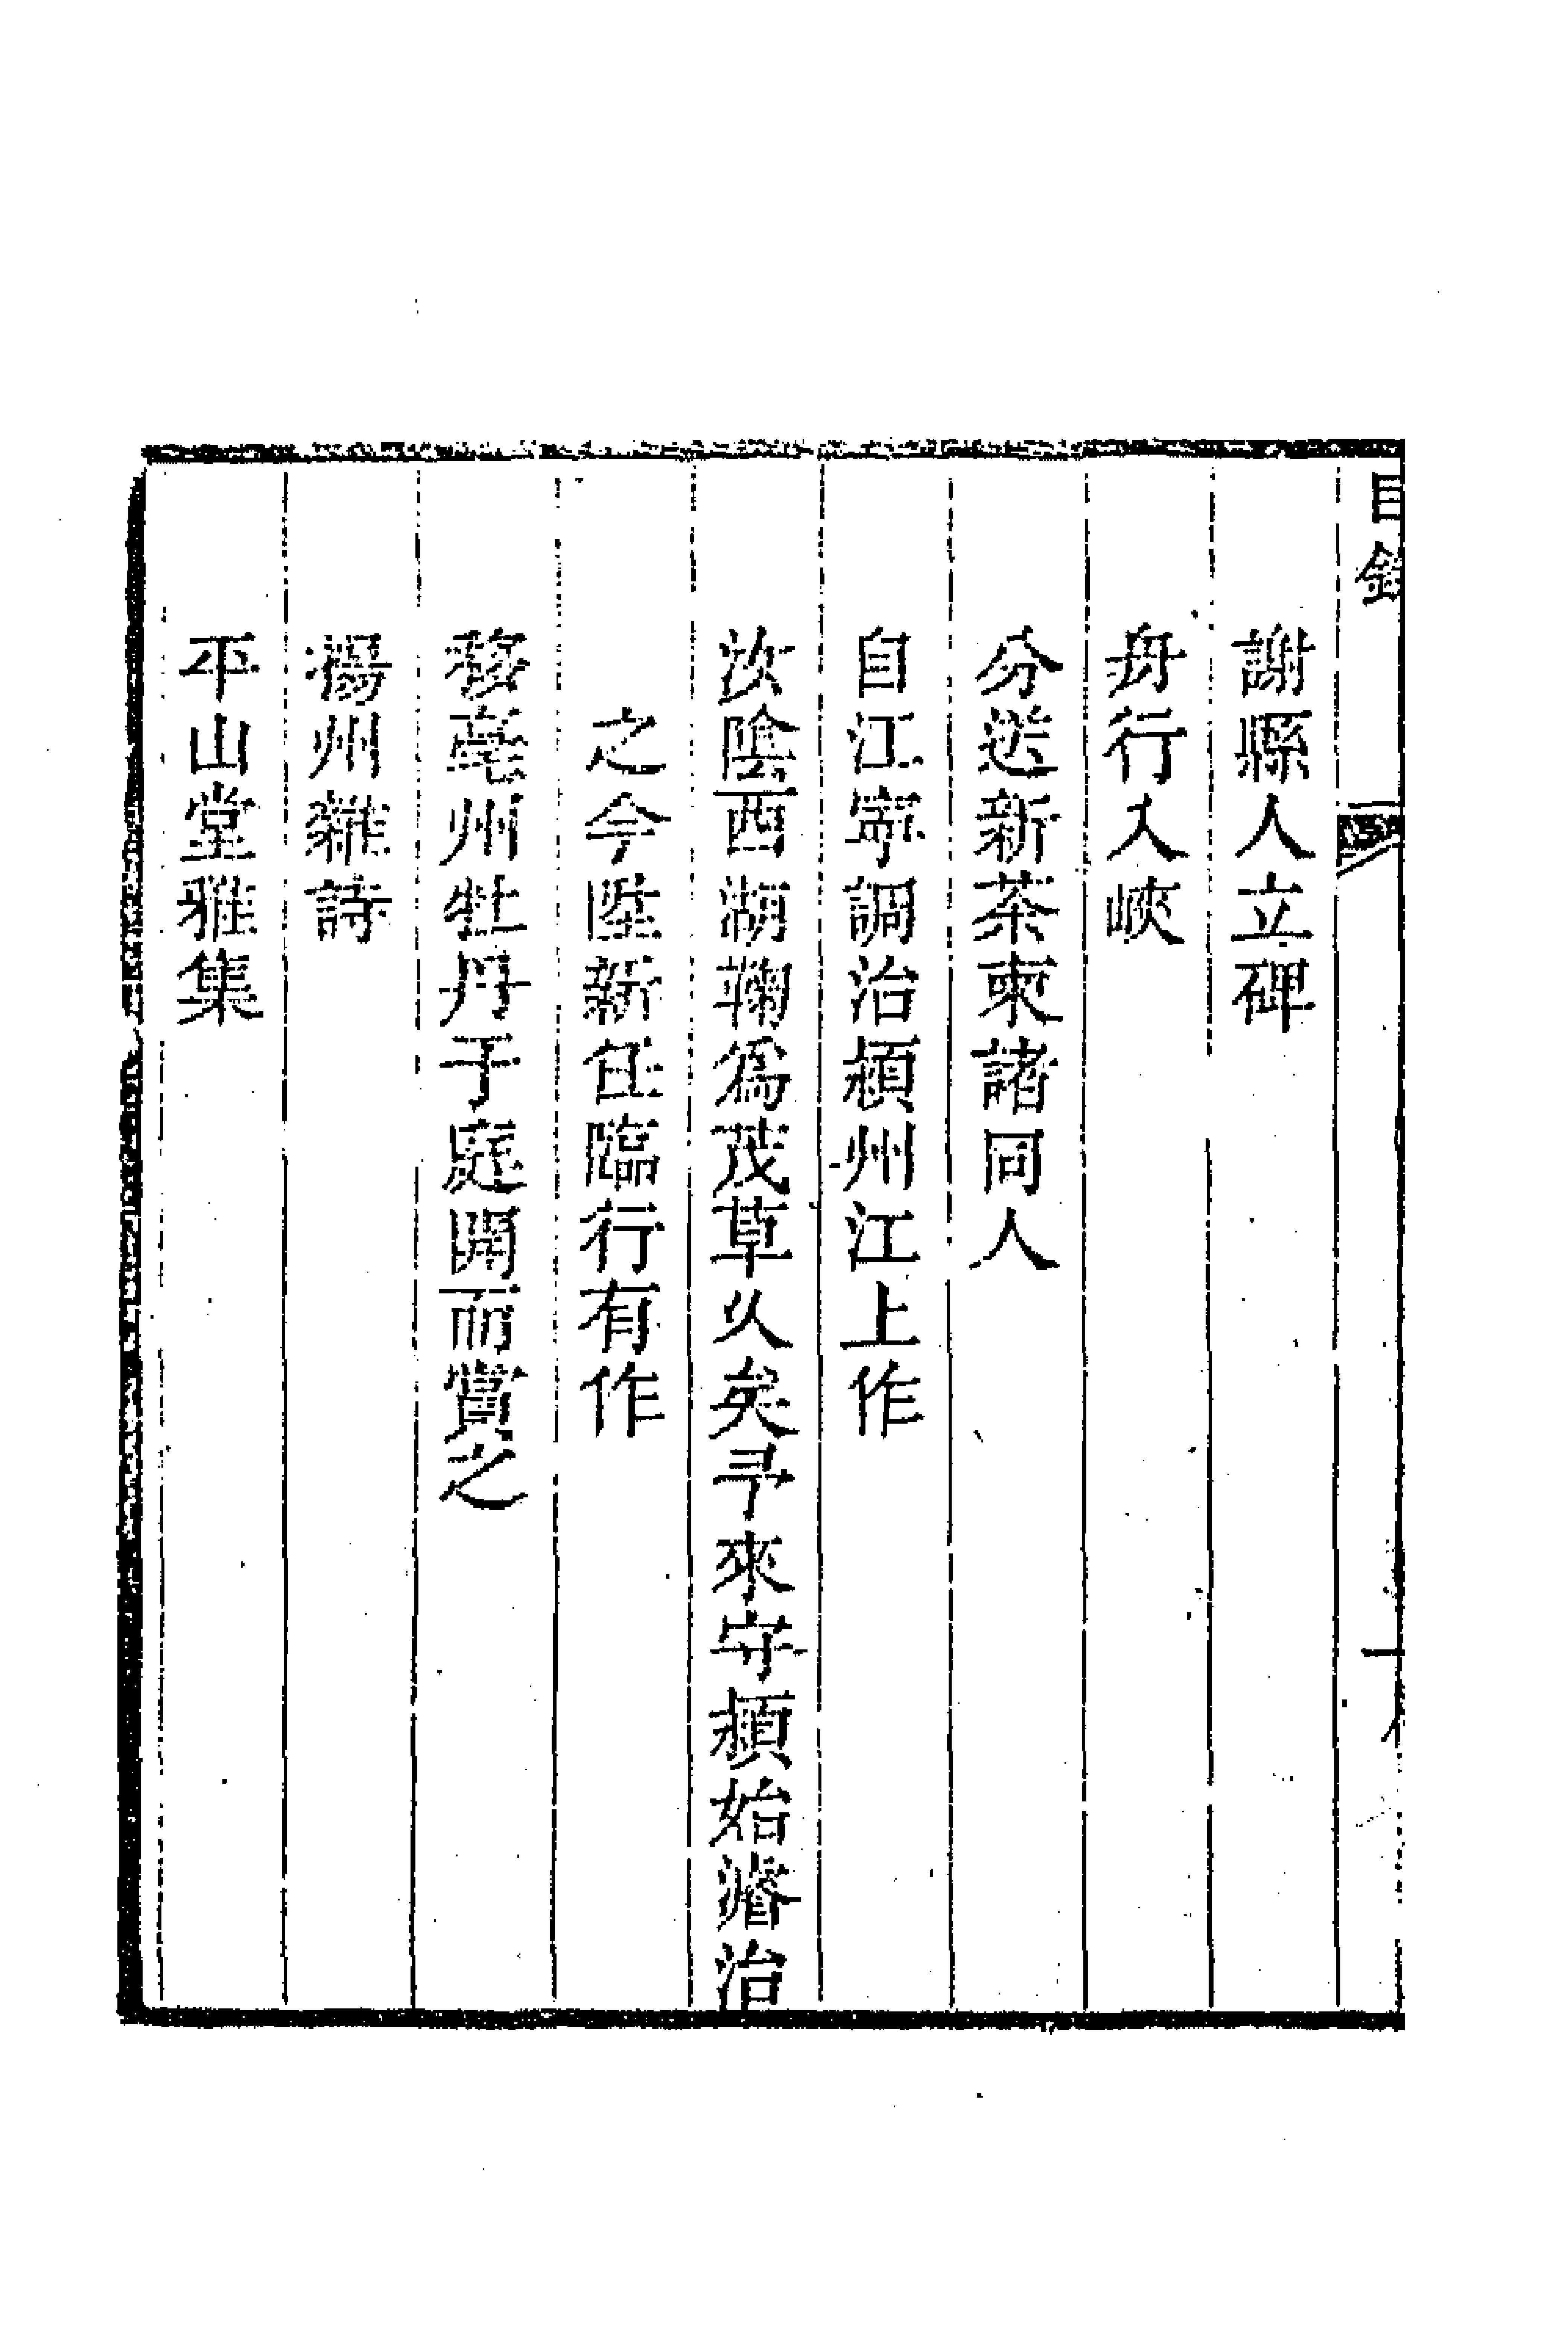 目錄
謝縣人立碑
舟行入峽
分送新茶柬諸同人
自江寧調治潁州江上作
汝陰西湖鞠爲茂草久矣予來守潁始濬治
之今陞新任臨行有作
移亳州牡丹于庭開而賞之
揚州雜詩
平山堂雅集